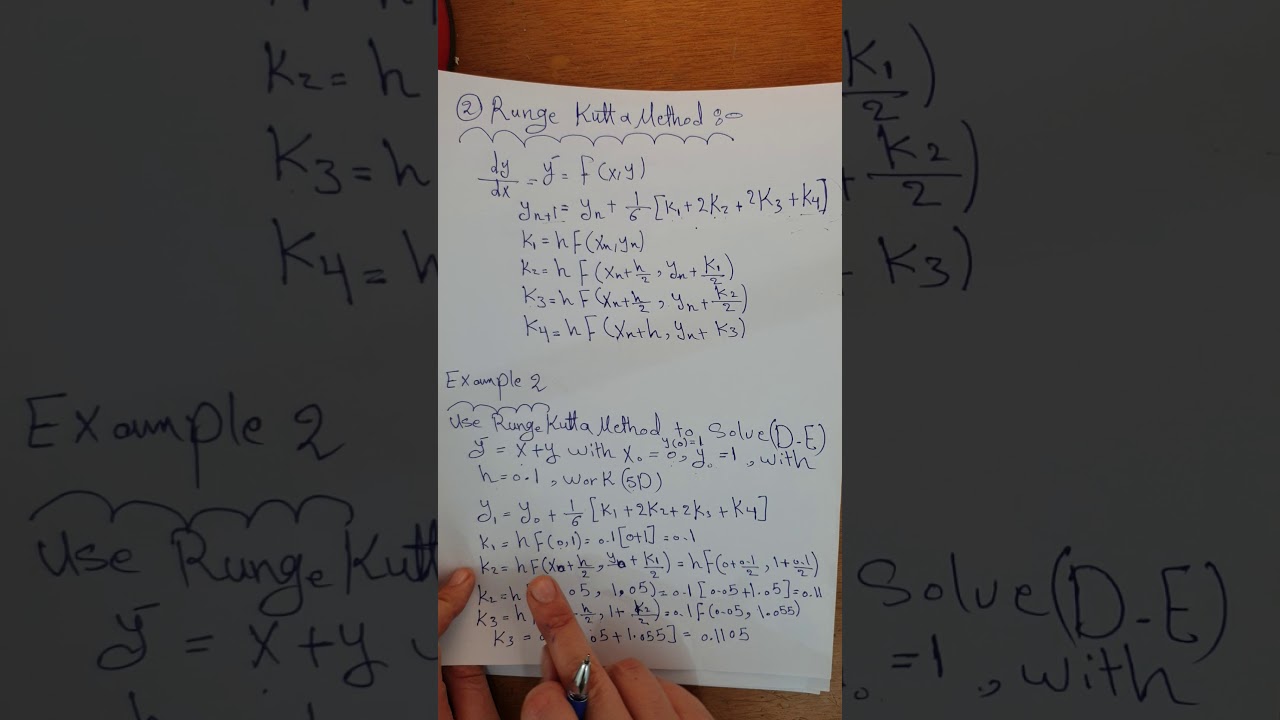 ② Runge Kutta Method :-
dy/dx = ȳ = F(x,y)
yn+1 = yn + 1/6 [K1 + 2K2 + 2K3 + K4]
K1 = hF(xn, yn)
K2 = hF(xn + h/2, yn + K1/2)
K3 = hF(xn + h/2, yn + K2/2)
K4 = hF(xn + h, yn + K3)
Example 2
Use Runge Kutta Method to Solve (D-E)
ȳ = x+y with x0 = 0, y0 = 1, with
y(0)=1
h = 0.1, work (5D)
y1 = y0 + 1/6 [K1 + 2K2 + 2K3 + K4]
K1 = hF(0,1) = 0.1[0+1] = 0.1
K2 = hF(x0 + h/2, y0 + K1/2) = hF(0 + 0.1/2, 1 + 0.1/2)
K2 = h 05, 1.05) = 0.1[0.05+1.05] = 0.11
K3 = h h/2, 1 + K2/2) = 0.1F(0.05, 1.055)
K3 = 05 + 1.055] = 0.1105